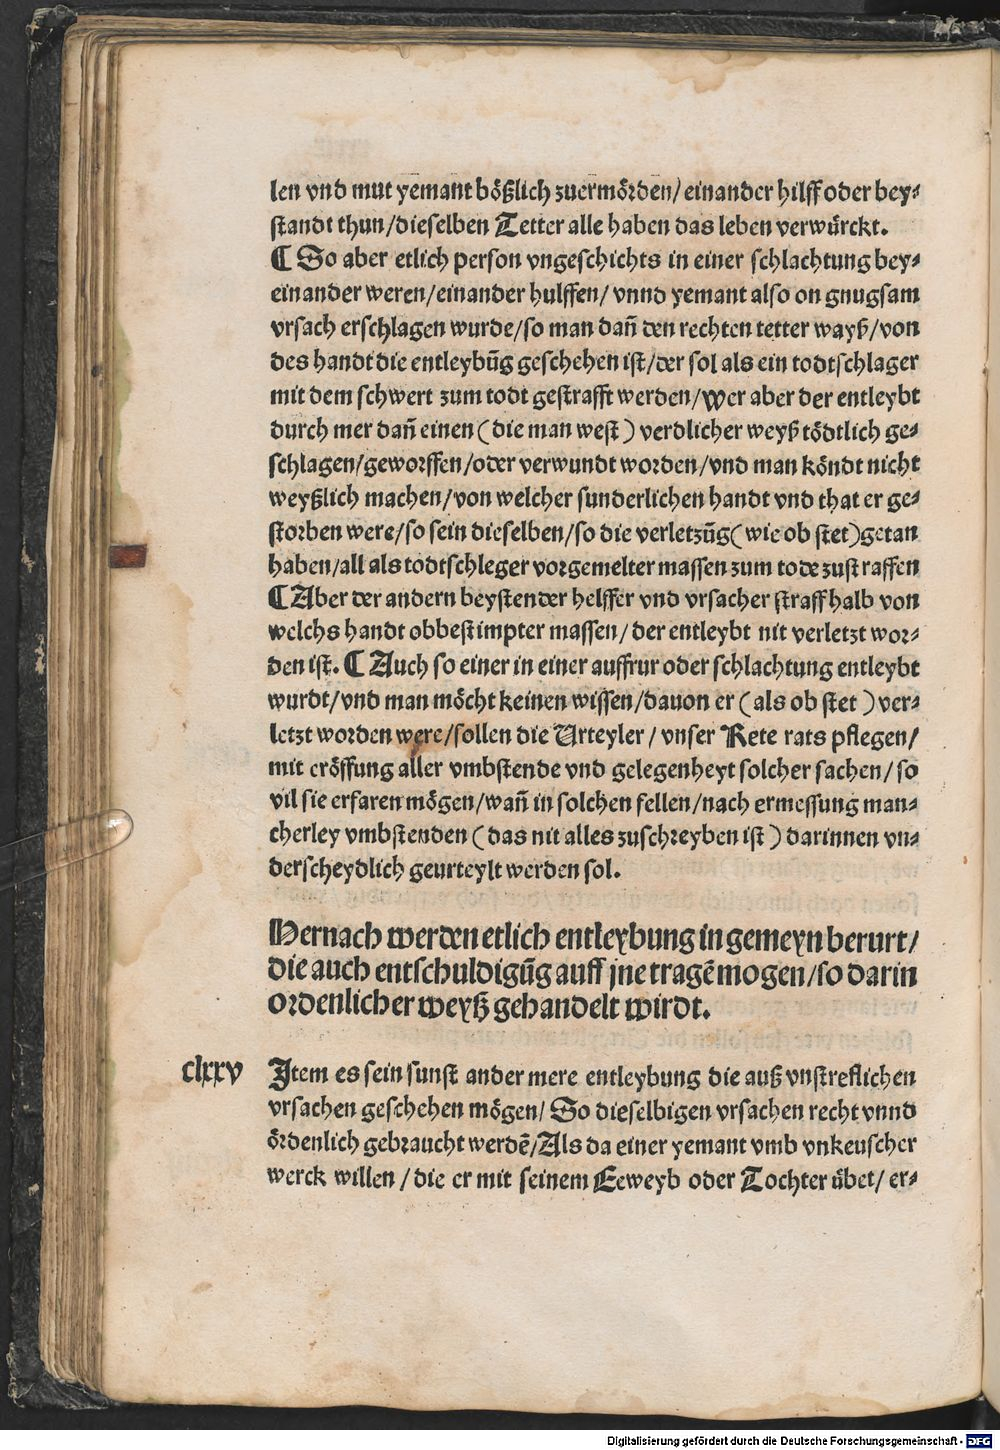 len vnd mut yemant bößlich zuermörden/ einander hilff oder bey⸗
standt thun/dieselben Tetter alle haben das leben verwürckt.
¶ So aber etlich person vngeschichts in einer schlachtung bey⸗
einander weren/einander hulffen/ vnnd yemant also on gnugsam
vrsach erschlagen wurde/so man dañ den rechten tetter wayß/von
des handt die entleybūg geschehen ist/der sol als ein todtschlager
mit dem schwert zum todt gestrafft werden/Wer aber der entleybt
durch mer dañ einen (die man west) verdlicher weyß tödtlich ge⸗
schlagen/geworffen/oder verwundt worden/vnd man köndt nicht
weyßlich machen/von welcher sunderlichen handt vnd that er ge⸗
storben were/so sein dieselben/so die verletzūg(wie ob stet)getan
haben/all als todtschleger vorgemelter massen zum tode zustraffen
¶ Aber der andern beystender helffer vnd vrsacher straffhalb von
welchs handt obbestimpter massen/ der entleybt nit verletzt wor⸗
den ist. ¶ Auch so einer in einer auffrur oder schlachtung entleybt
wurdt/vnd man möcht keinen wissen/dauon er (als ob stet) ver⸗
letzt worden were/sollen die Urteyler/ vnser Rete rats pflegen/
mit eröffung aller vmbstende vnd gelegenheyt solcher sachen/ so
vil sie erfaren mögen/wañ in solchen fellen/nach ermessung man⸗
cherley vmbstenden (das nit alles zuschreyben ist) darinnen vn⸗
derscheydlich geurteylt werden sol.
Hernach werden etlich entleybung in gemeyn berurt/
die auch entschuldigūg auff jne tragē mogen/so darin
ordenlicher weyß gehandelt wirdt.
clxxv Item es sein sunst ander mere entleybung die auß vnstreflichen
vrsachen geschehen mögen/ So dieselbigen vrsachen recht vnnd
ördenlich gebraucht werdē/Als da einer yemant vmb vnkeuscher
werck willen /die er mit seinem Eeweyb oder Tochter übet/ er⸗
Digitalisierung gefördert durch die Deutsche Forschungsgemeinschaft - DFG